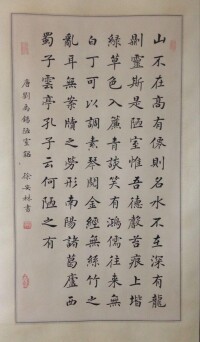 山不在高有僊則名水不在深有龍
則靈斯是陋室惟吾德馨苔痕上堦
綠草色入簾青談笑有鴻儒往来無
白丁可以調素琴閱金經無絲竹之
亂耳無案牘之勞形南陽諸葛廬西
蜀子雲亭孔子云何陋之有
唐劉禹錫陋室銘 徐安林書